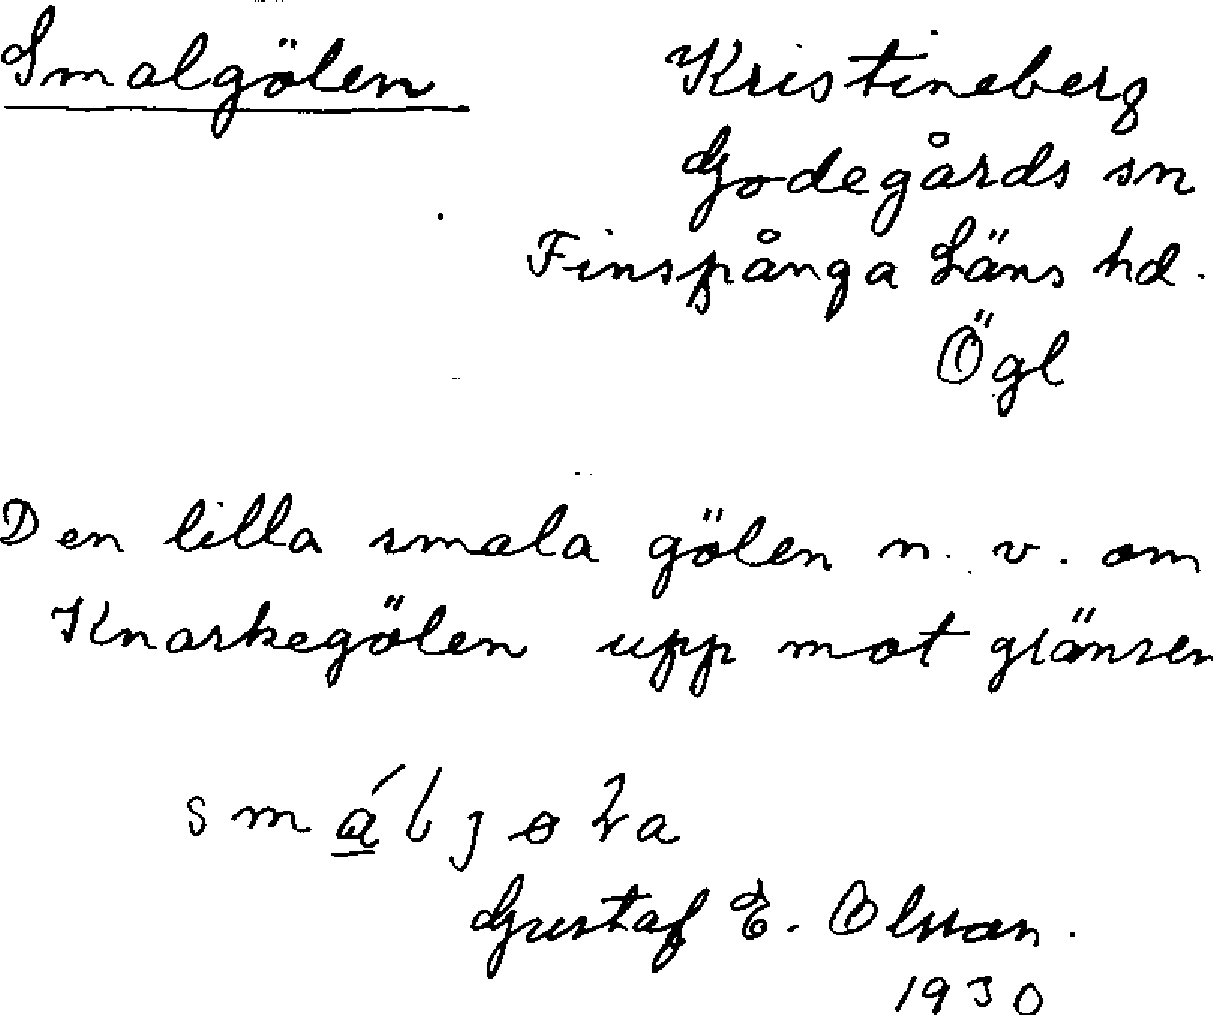 Smalgölen
Kristineberg
Godegårds sn
Finspånga Läns hd.
Ögl
Den lilla smala gölen n. v. om
Knarkegölen upp mot gränsen
Gustaf E. Olsson.
1930